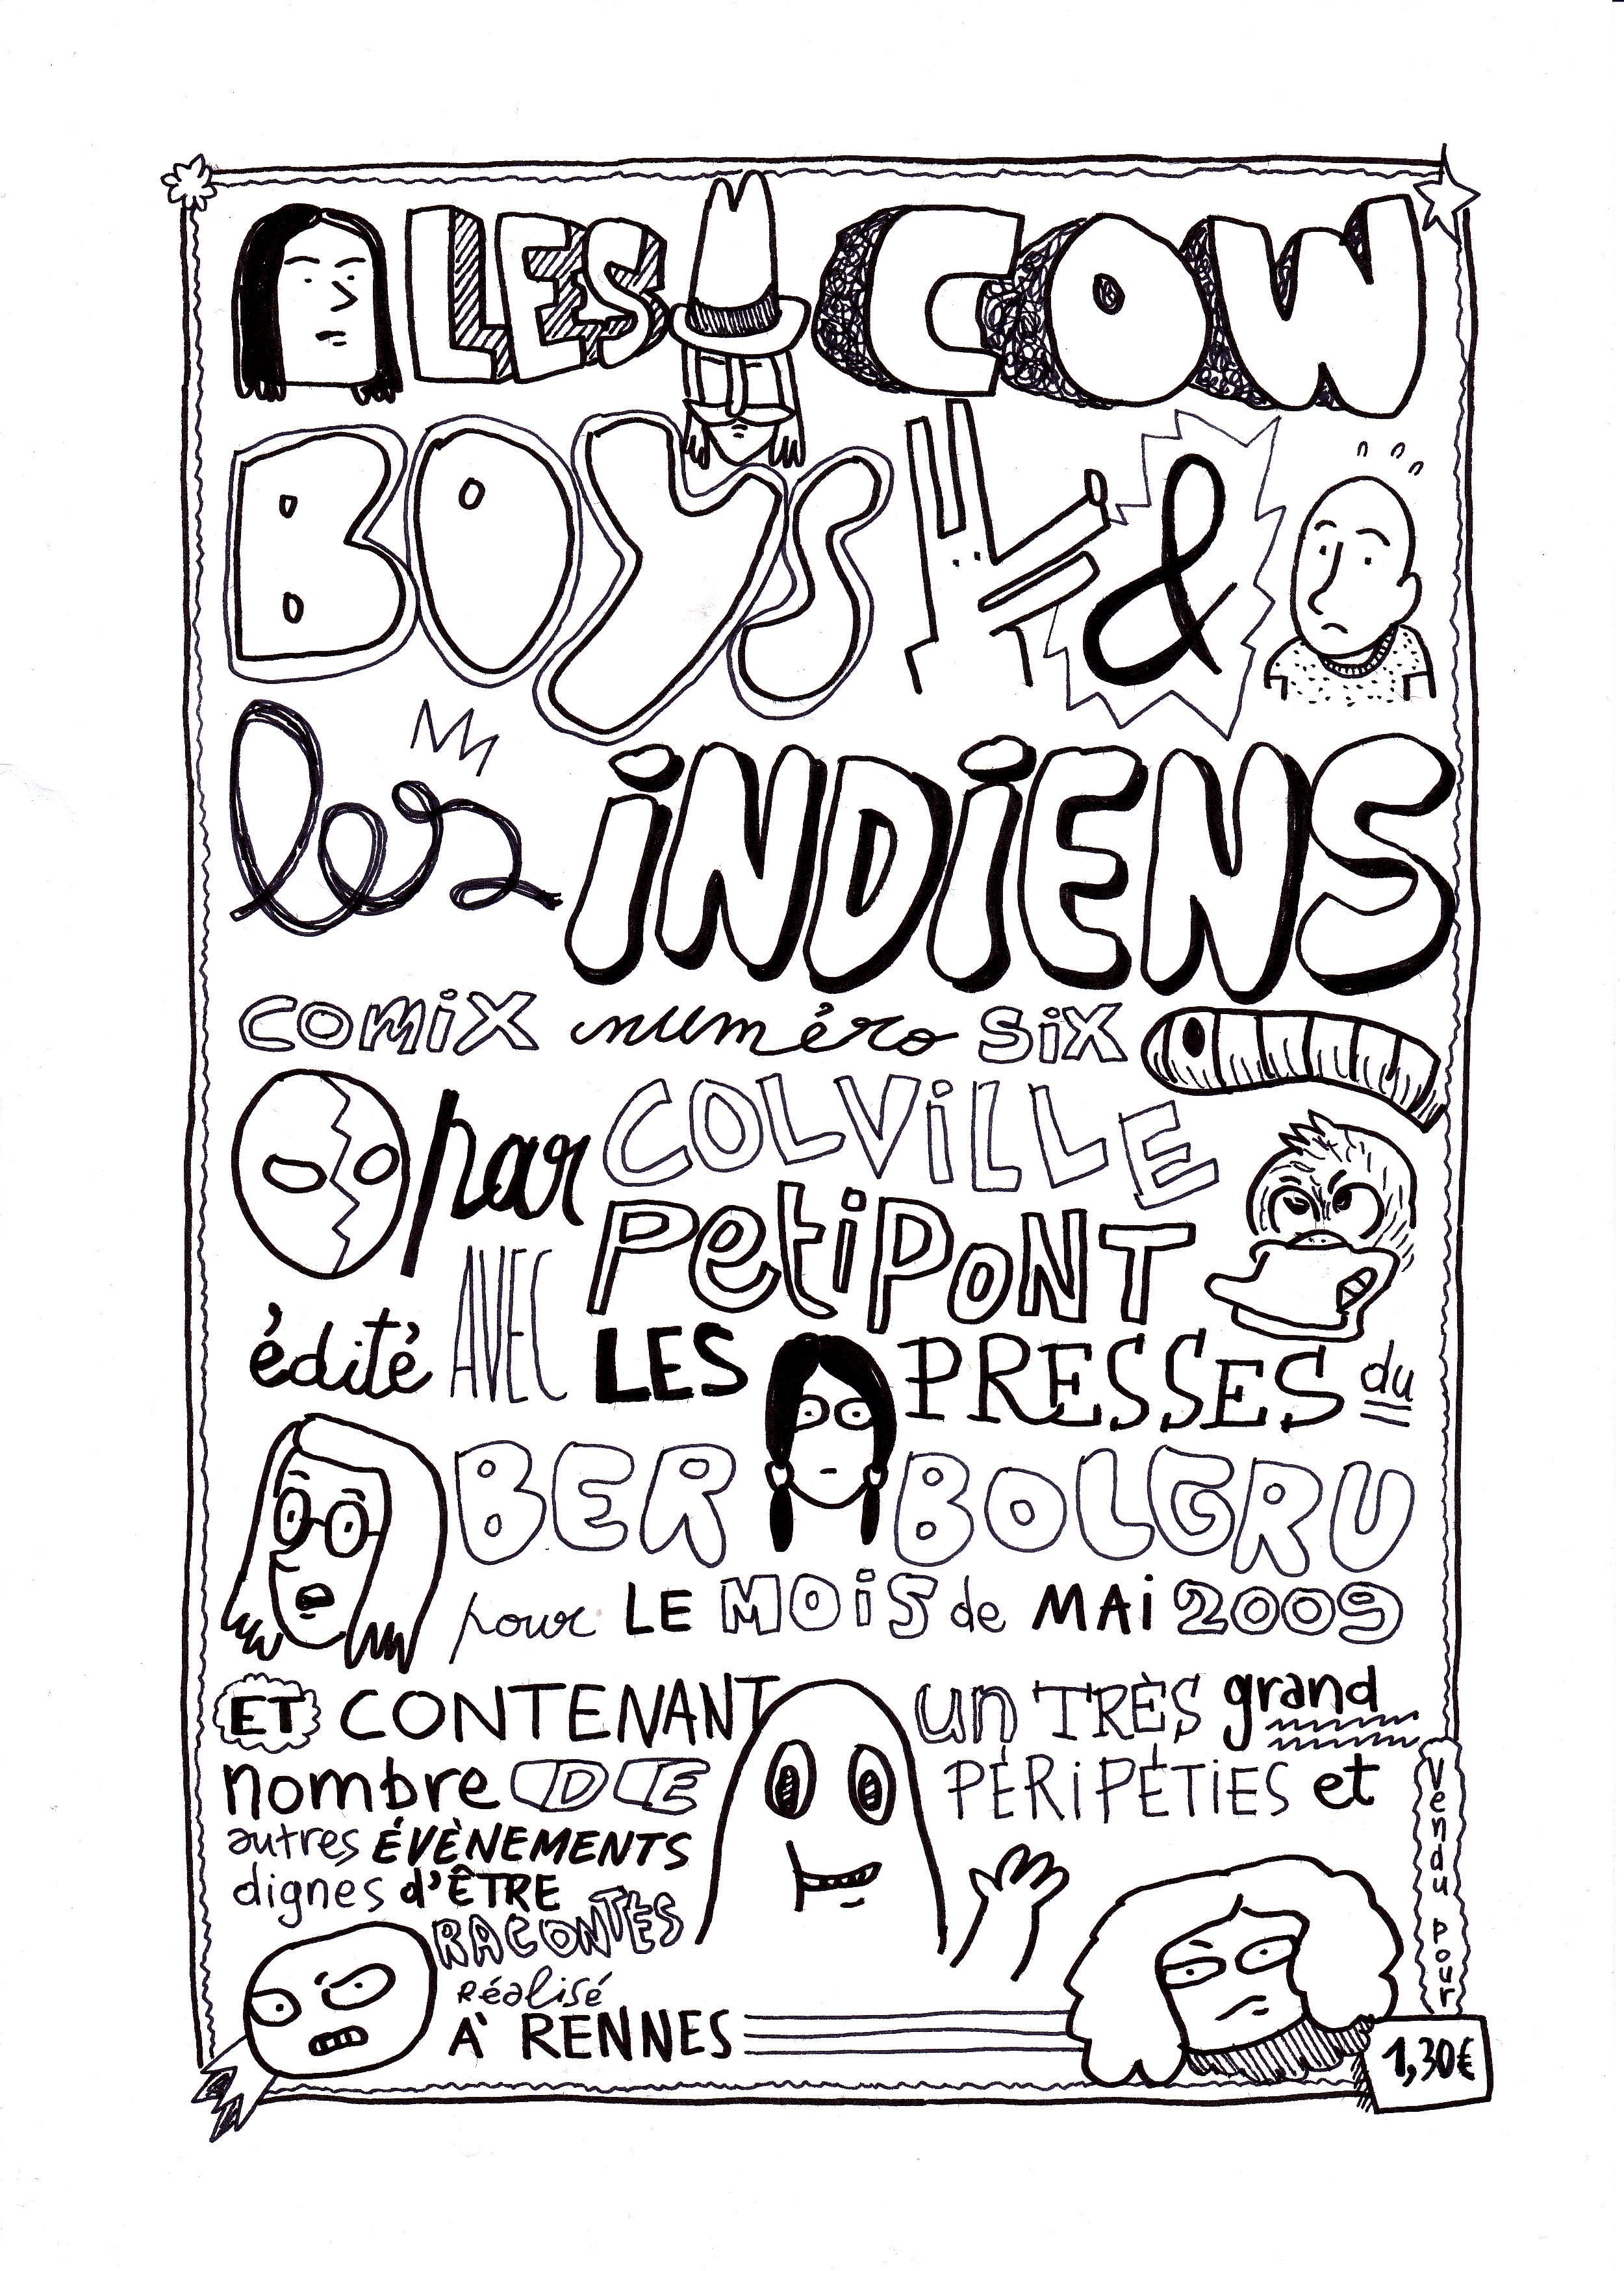 LES COW
BOYS &
les iNDiENS
COMiX numéro SiX
par COLViLLE
PetiPONT
édité AVEC LES PRESSES du
BER BOLGRU
pour LE MOiS de MAi 2009
ET CONTENANT un TRÈS grand
nombre DE PÉRiPÉTiES et
autres ÉVÈNEMENTS
dignes d'ÊTRE
RACONTÉS
Réalisé
À RENNES
vendu pour
1,30€